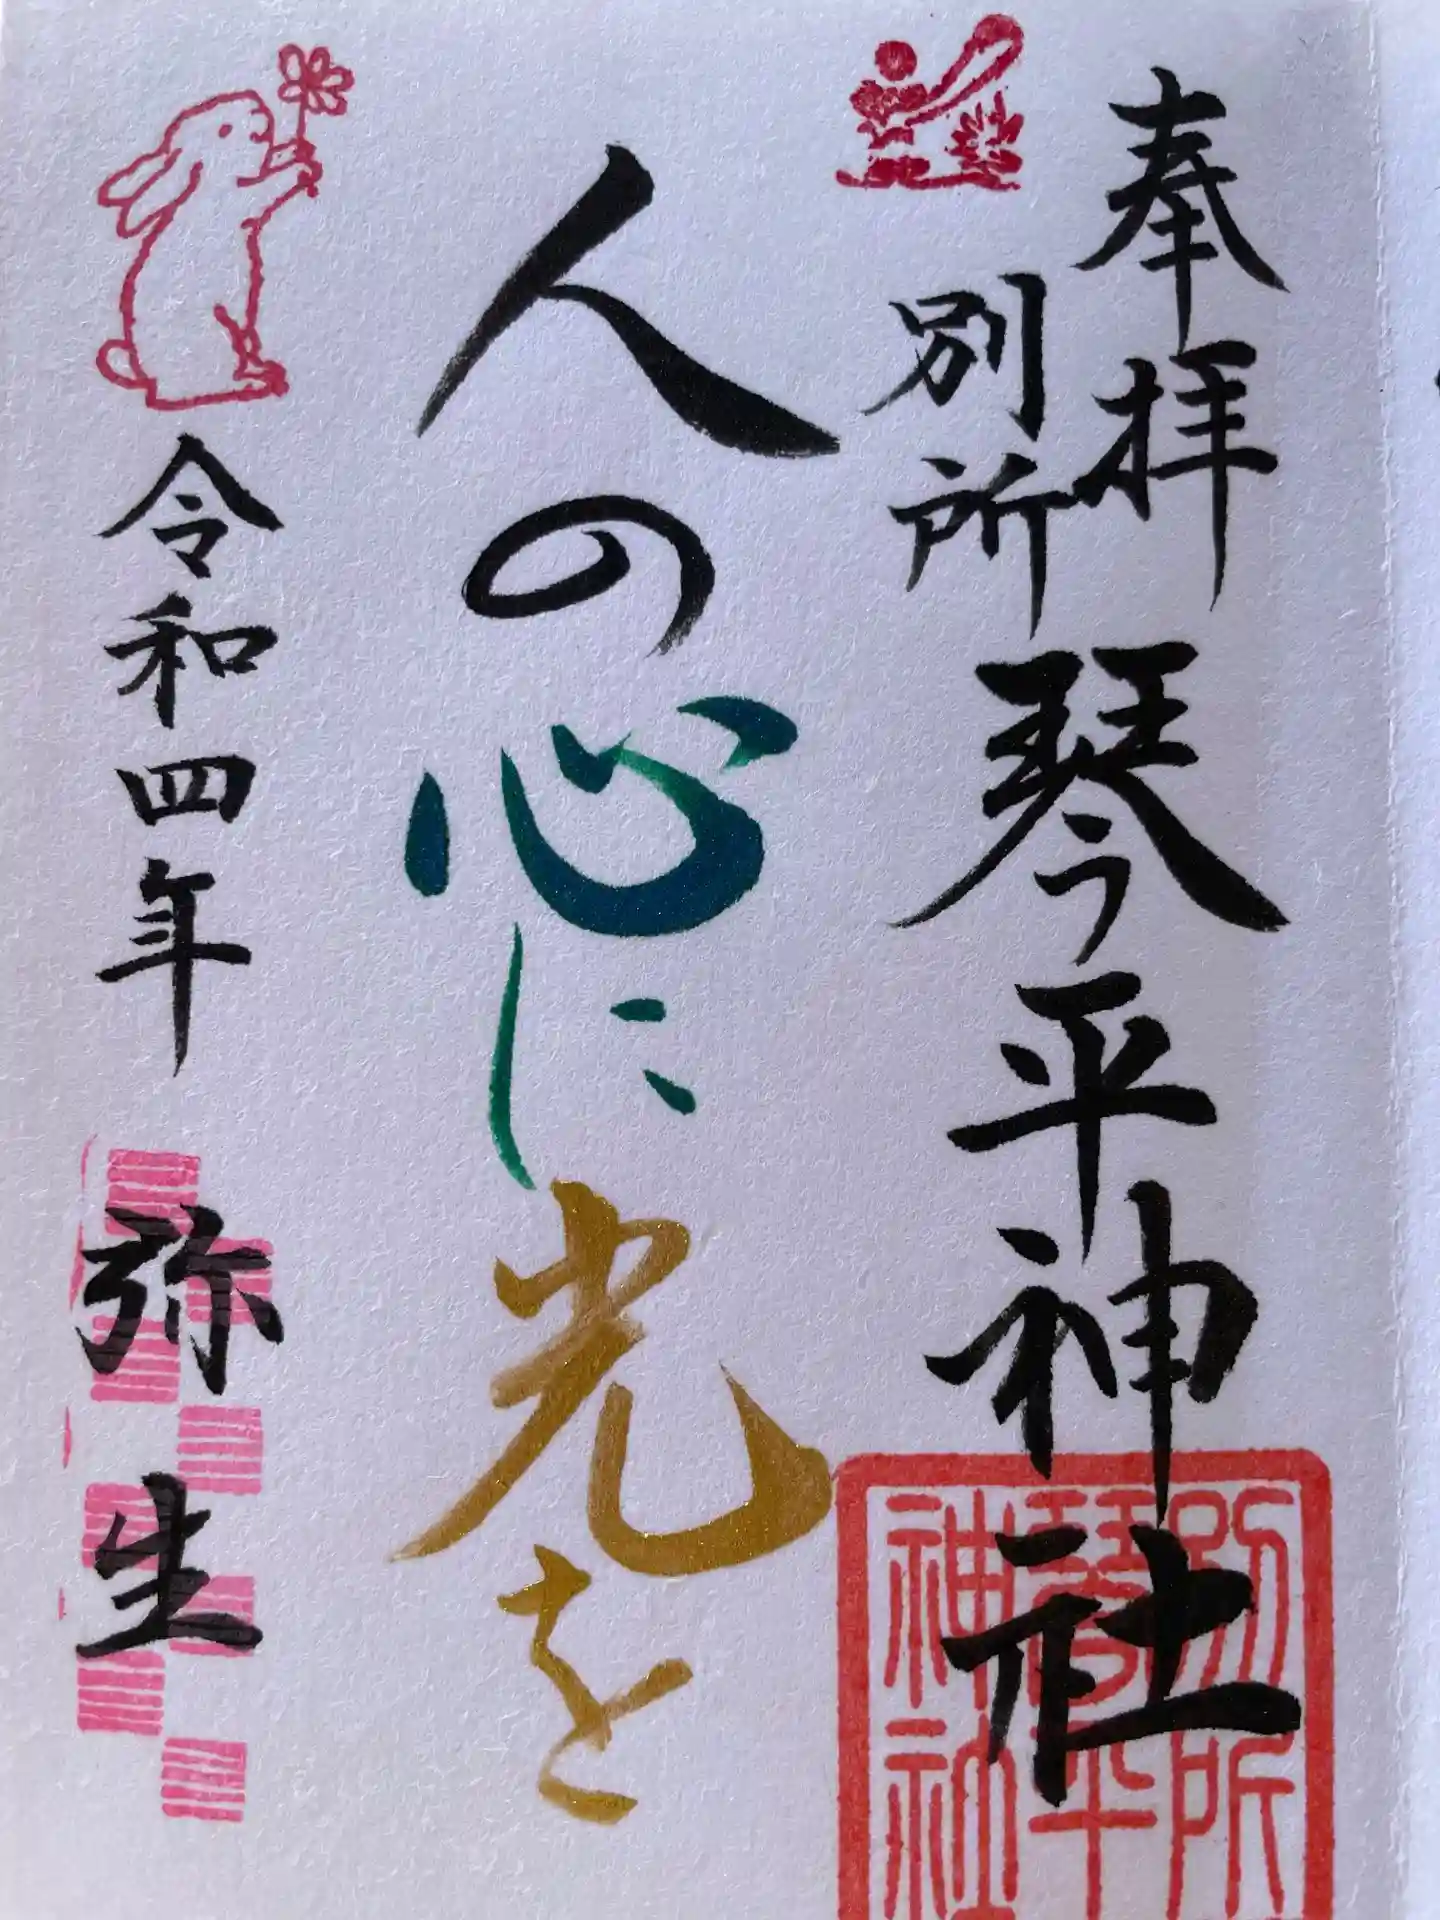 奉拝
別所
琴平神社
別所
琴平
神社
人の心に光を
令和四年
弥生